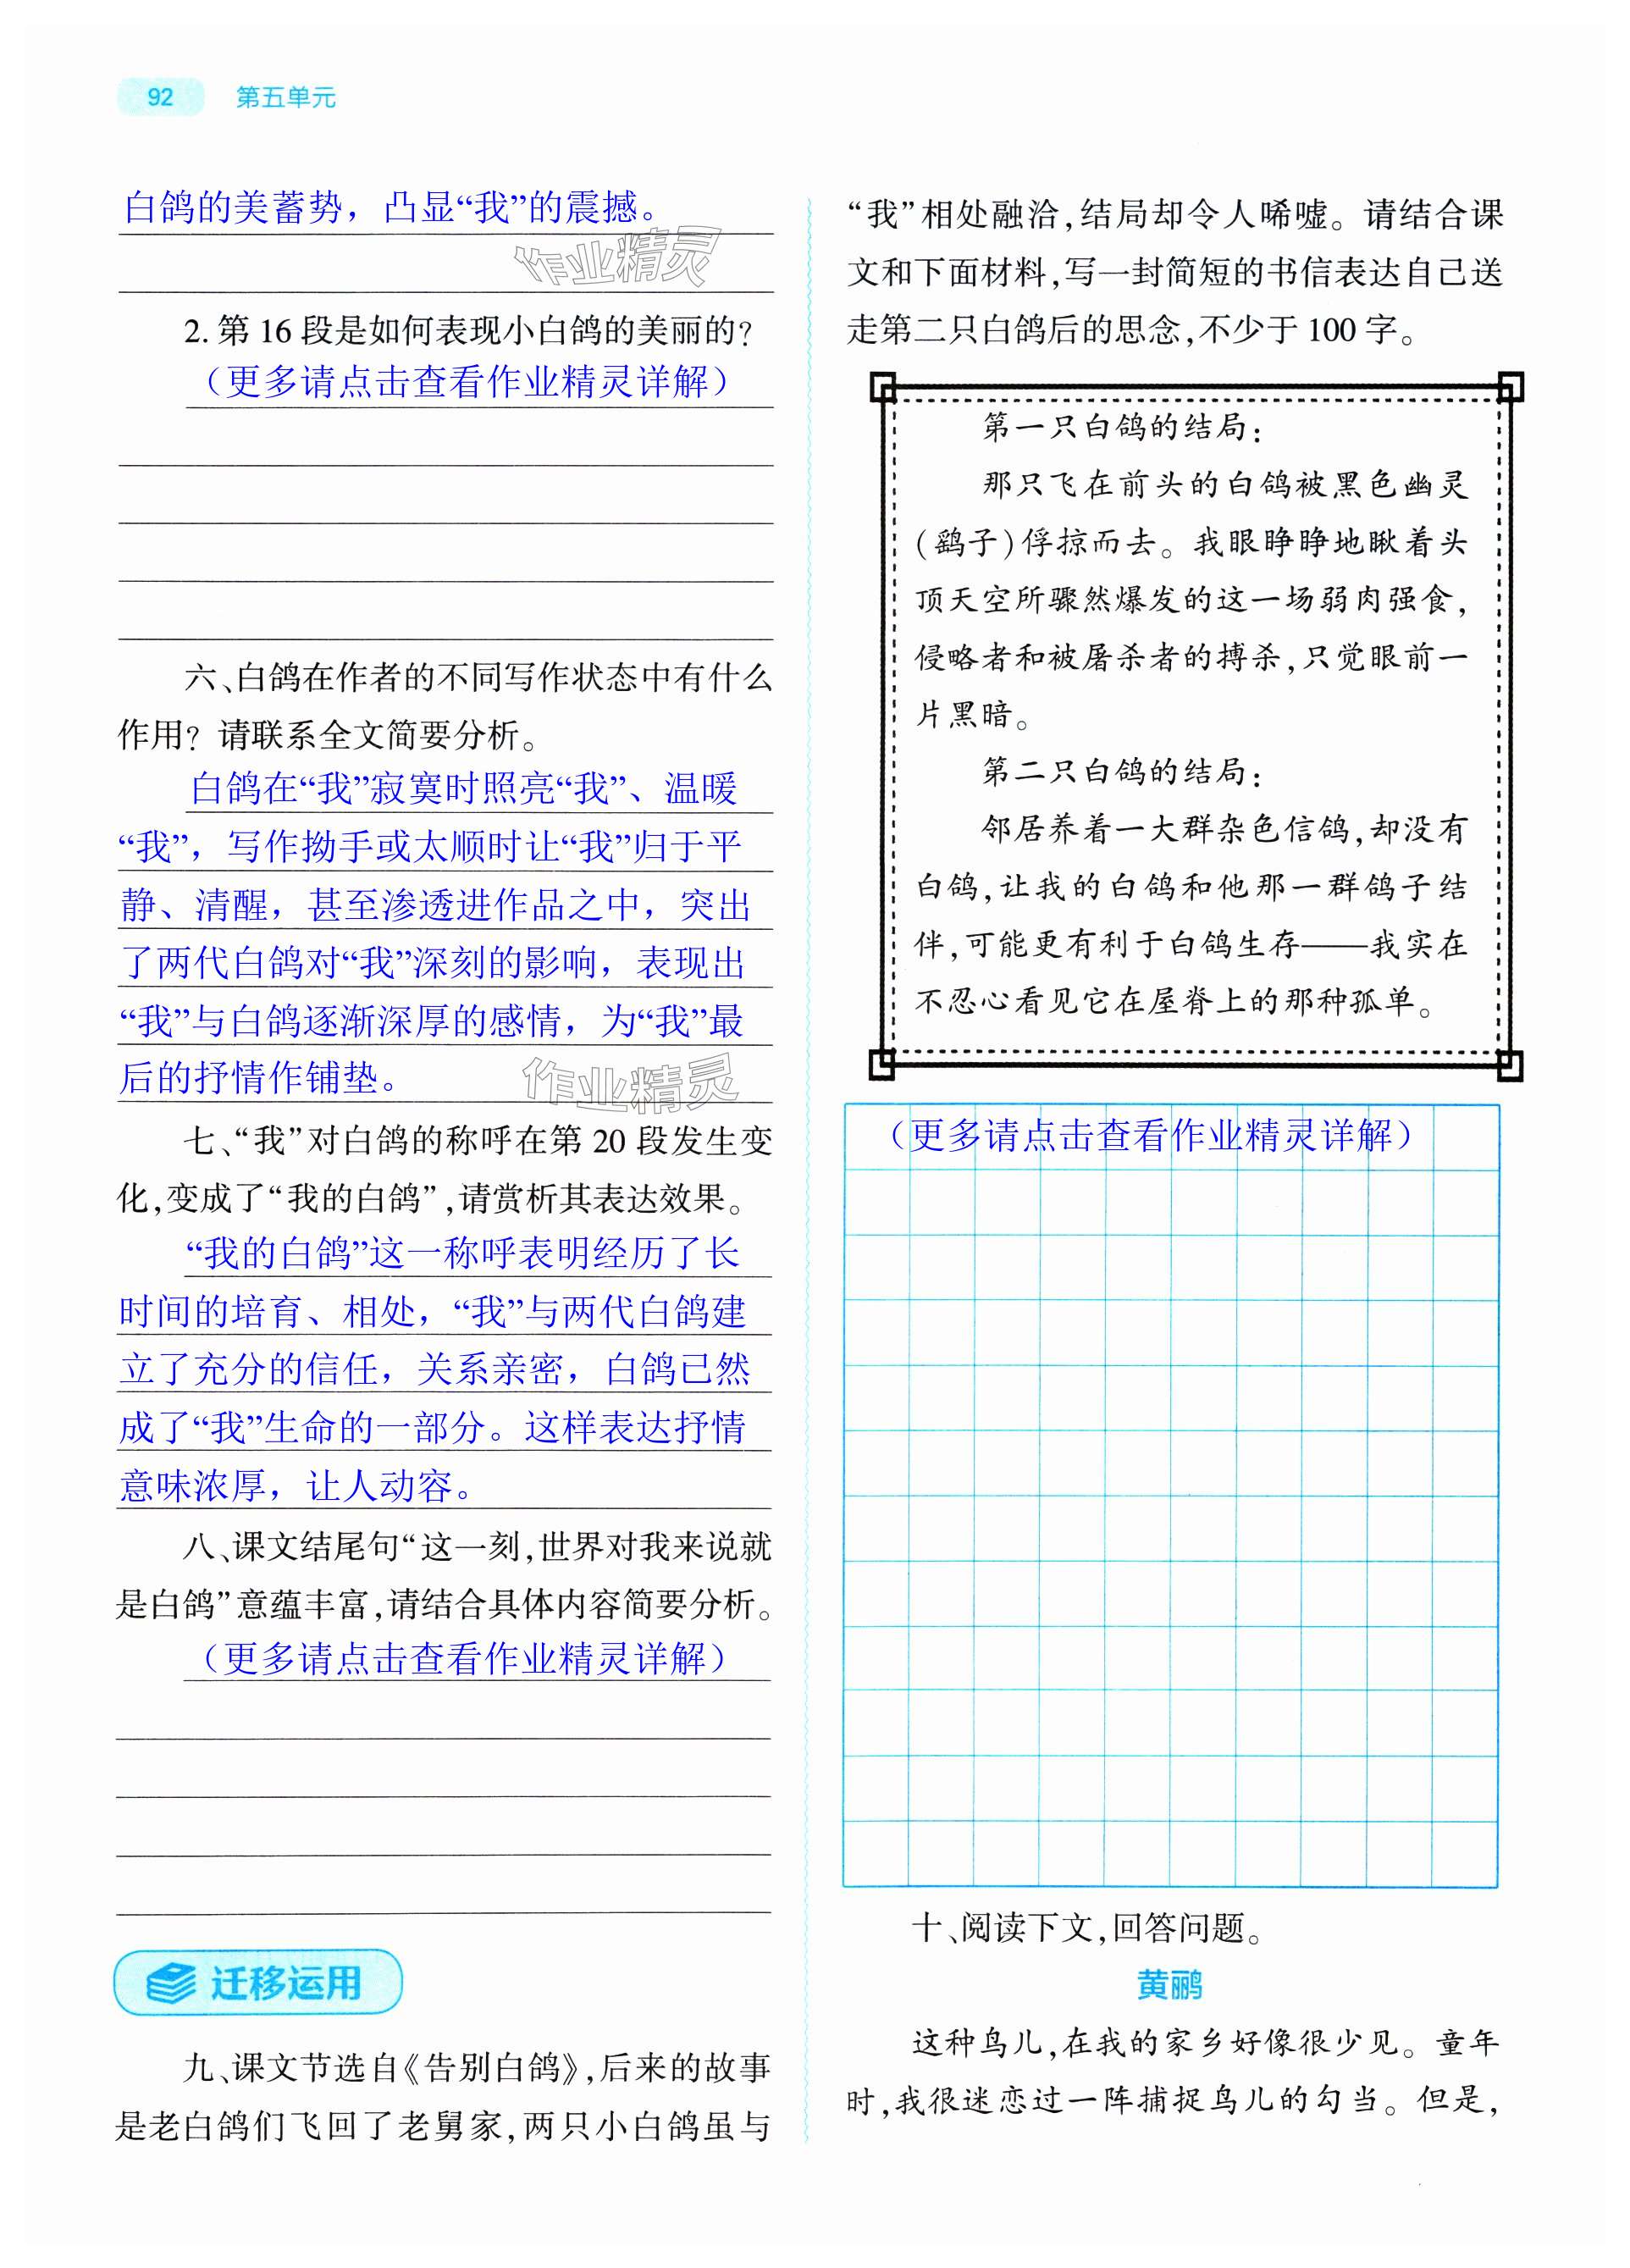 92 第五单元
白鸽的美蓄势，凸显“我”的震撼。
作业精灵
2. 第 16 段是如何表现小白鸽的美丽的？
（更多请点击查看作业精灵详解）
六、白鸽在作者的不同写作状态中有什么
作用？请联系全文简要分析。
白鸽在“我”寂寞时照亮“我”、温暖
“我”，写作拗手或太顺时让“我”归于平
静、清醒，甚至渗透进作品之中，突出
了两代白鸽对“我”深刻的影响，表现出
“我”与白鸽逐渐深厚的感情，为“我”最
后的抒情作铺垫。
作业精灵
七、“我”对白鸽的称呼在第 20 段发生变
化，变成了“我的白鸽”，请赏析其表达效果。
“我的白鸽”这一称呼表明经历了长
时间的培育、相处，“我”与两代白鸽建
立了充分的信任，关系亲密，白鸽已然
成了“我”生命的一部分。这样表达抒情
意味浓厚，让人动容。
八、课文结尾句“这一刻，世界对我来说就
是白鸽”意蕴丰富，请结合具体内容简要分析。
（更多请点击查看作业精灵详解）
迁移运用
九、课文节选自《告别白鸽》，后来的故事
是老白鸽们飞回了老舅家，两只小白鸽虽与
“我”相处融洽，结局却令人唏嘘。请结合课
文和下面材料，写一封简短的书信表达自己送
走第二只白鸽后的思念，不少于 100 字。
第一只白鸽的结局：
那只飞在前头的白鸽被黑色幽灵
（鹞子）俘掠而去。我眼睁睁地瞅着头
顶天空所骤然爆发的这一场弱肉强食，
侵略者和被屠杀者的搏杀，只觉眼前一
片黑暗。
第二只白鸽的结局：
邻居养着一大群杂色信鸽，却没有
白鸽，让我的白鸽和他那一群鸽子结
伴，可能更有利于白鸽生存——我实在
不忍心看见它在屋脊上的那种孤单。
（更多请点击查看作业精灵详解）
十、阅读下文，回答问题。
黄鹂
这种鸟儿，在我的家乡好像很少见。童年
时，我很迷恋过一阵捕捉鸟儿的勾当。但是，